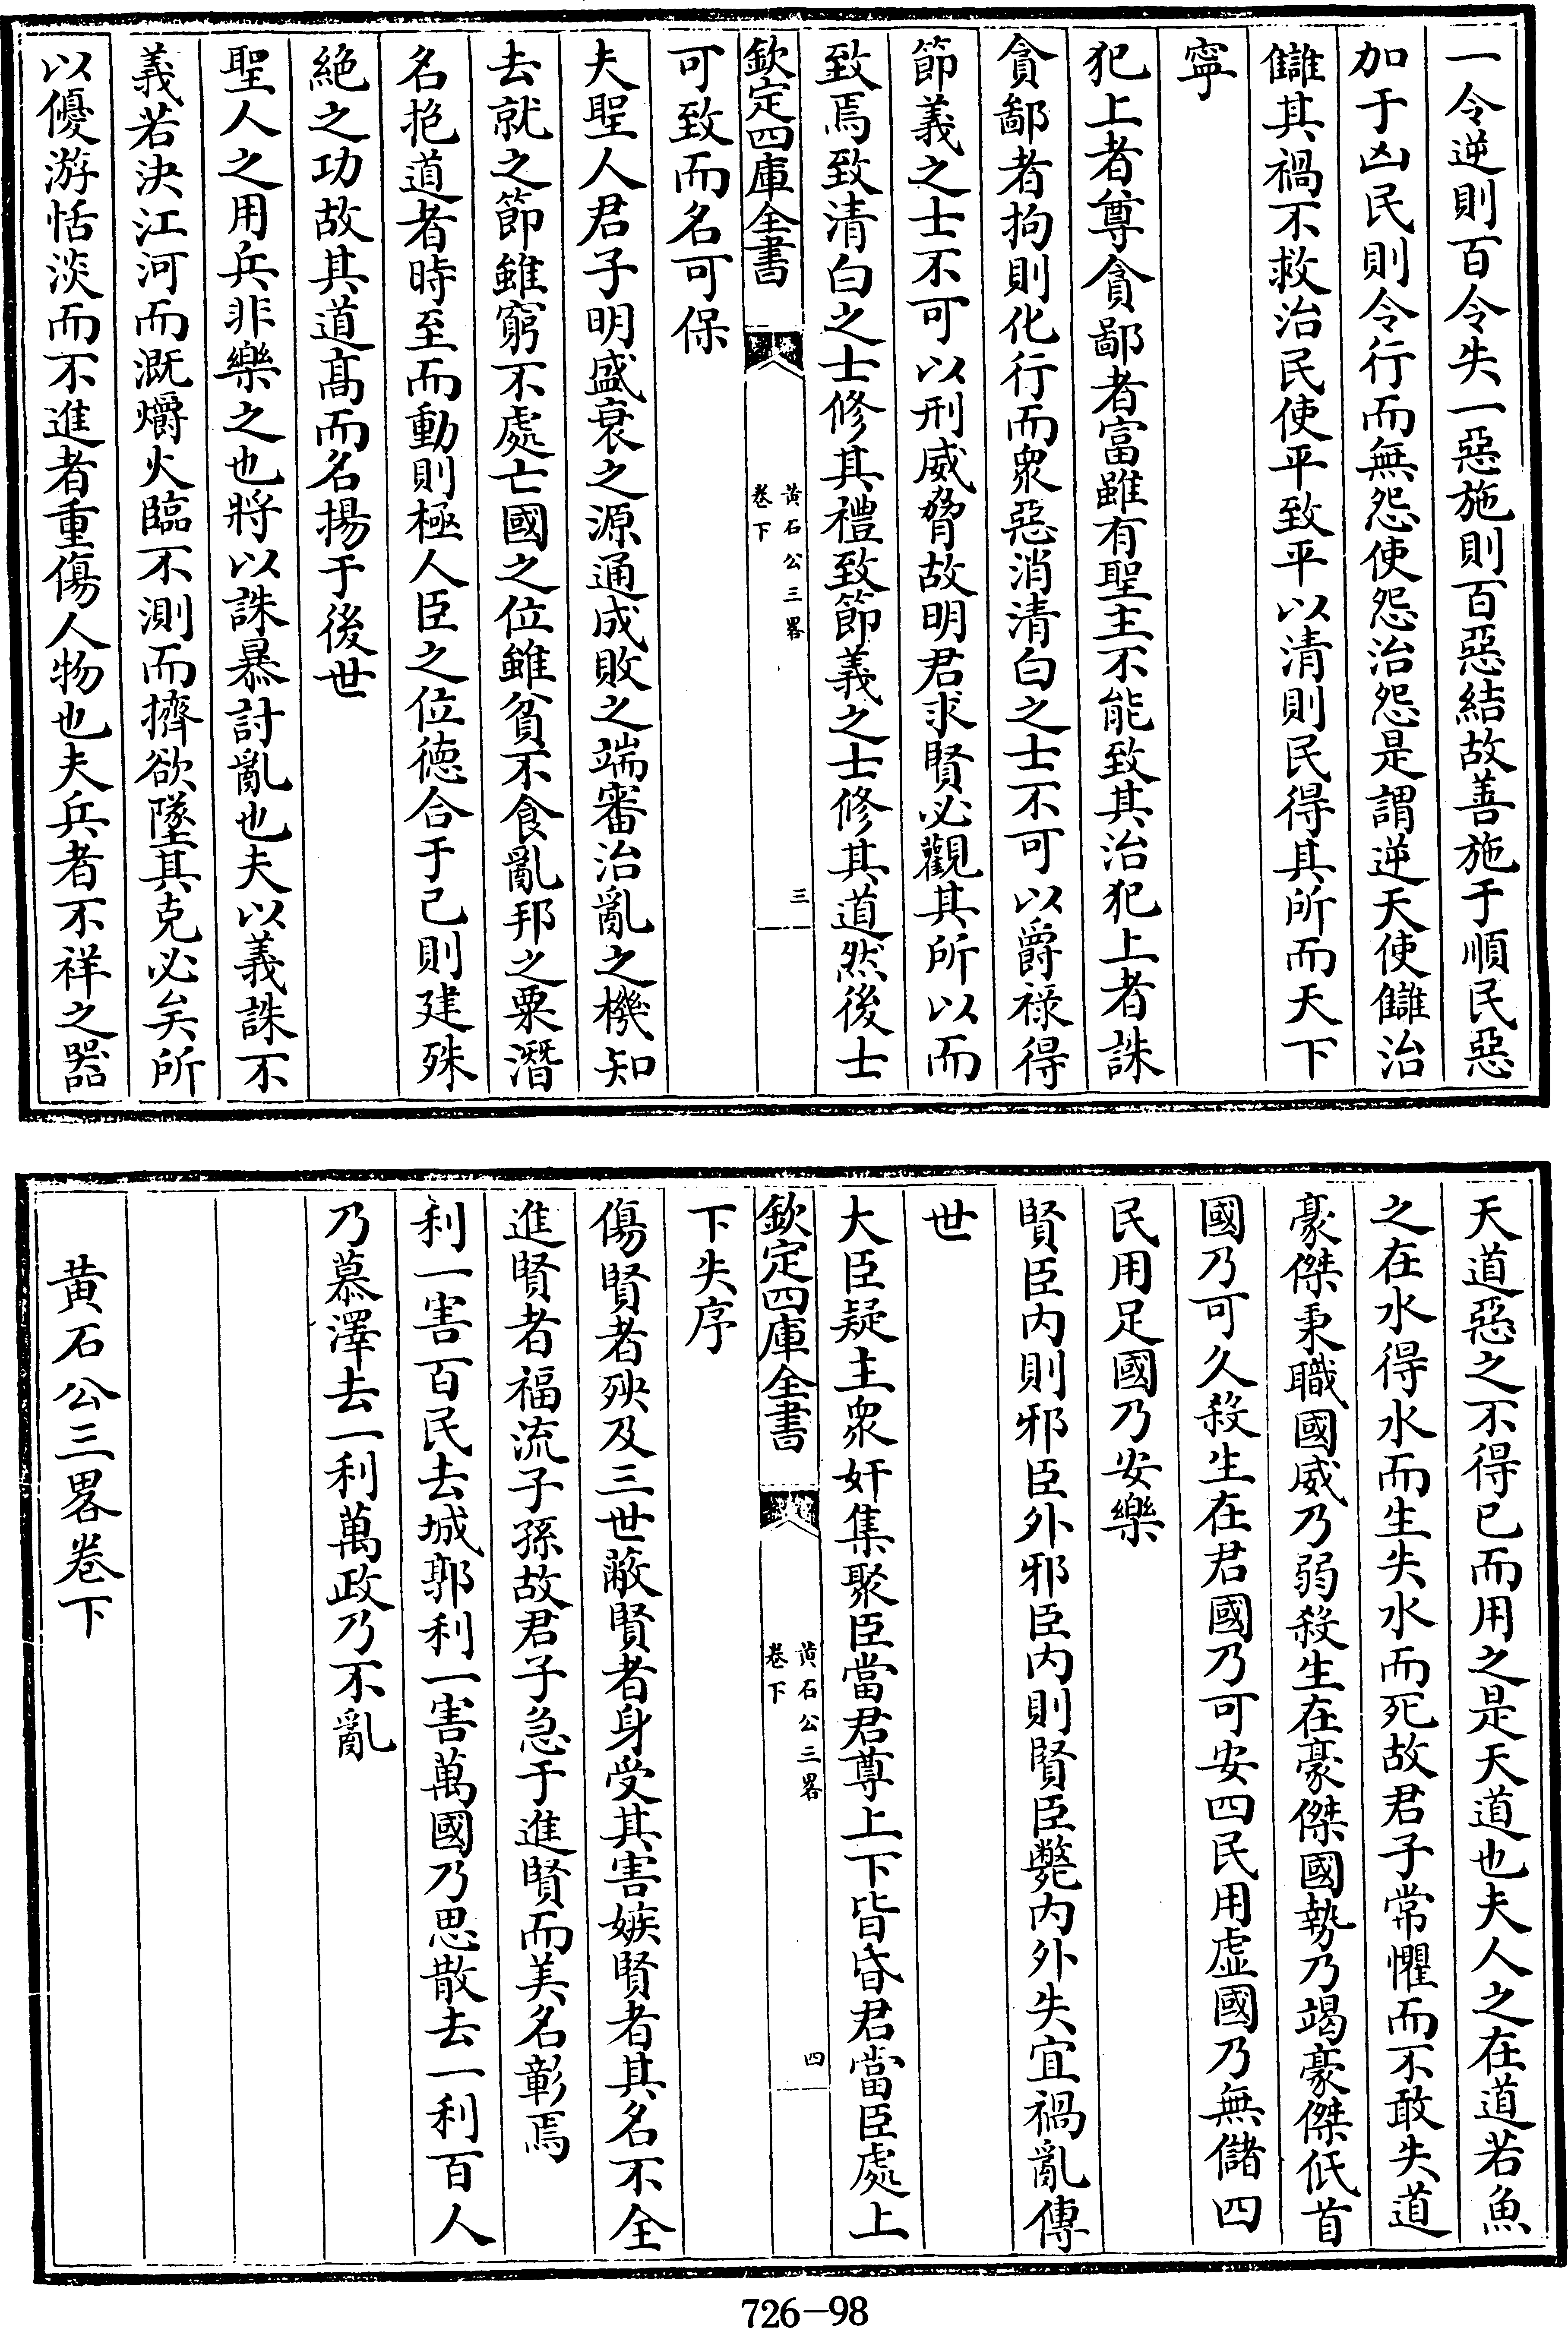 一令逆則百令失一惡施則百惡結故善施于順民惡
加于凶民則令行而無怨使怨治怨是謂逆天使讎治
讎其禍不救治民使平致平以清則民得其所而天下
寧
犯上者尊貪鄙者富雖有聖主不能致其治犯上者誅
貪鄙者拘則化行而衆惡消清白之士不可以爵祿得
節義之士不可以刑威脅故明君求賢必觀其所以而
致焉致清白之士修其禮致節義之士修其道然後士
欽定四庫全書
黄石公三畧
卷下
三
可致而名可保
夫聖人君子明盛衰之源通成敗之端審治亂之機知
去就之節雖窮不處亡國之位雖貧不食亂邦之粟潛
名抱道者時至而動則極人臣之位德合于己則建殊
絶之功故其道髙而名揚于後世
聖人之用兵非樂之也將以誅暴討亂也夫以義誅不
義若決江河而溉爝火臨不測而擠欲墜其克必矣所
以優游恬淡而不進者重傷人物也夫兵者不祥之器
天道惡之不得已而用之是天道也夫人之在道若魚
之在水得水而生失水而死故君子常懼而不敢失道
豪傑秉職國威乃弱殺生在豪傑國勢乃竭豪傑低首
國乃可久殺生在君國乃可安四民用虚國乃無儲四
民用足國乃安樂
賢臣内則邪臣外邪臣内則賢臣斃内外失宜禍亂傳
世
大臣疑主衆奸集聚臣當君尊上下皆昏君當臣處上
欽定四庫全書
黄石公三畧
卷下
四
下失序
傷賢者殃及三世蔽賢者身受其害嫉賢者其名不全
進賢者福流子孫故君子急于進賢而美名彰焉
利一害百民去城郭利一害萬國乃思散去一利百人
乃慕澤去一利萬政乃不亂
黄石公三畧卷下
726-98